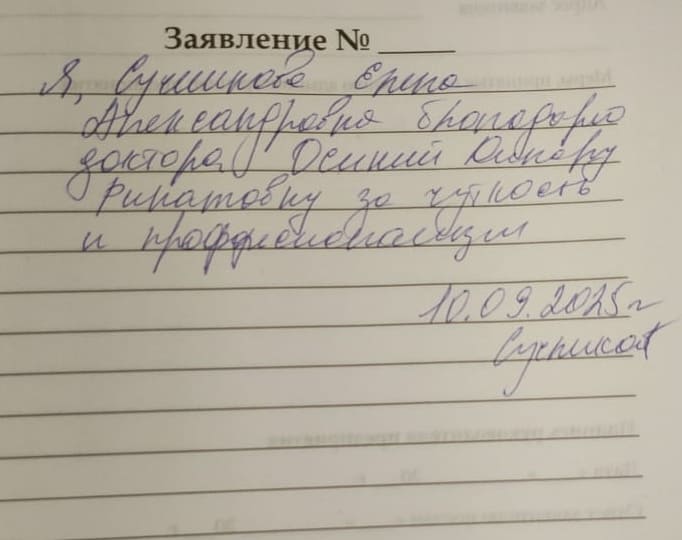 Заявление № _____
Я, Сучкова Елена
Александровна благодарю
доктора Осипий Динару
Ринатовну за чуткость
и профессионализм
10.09.2025г